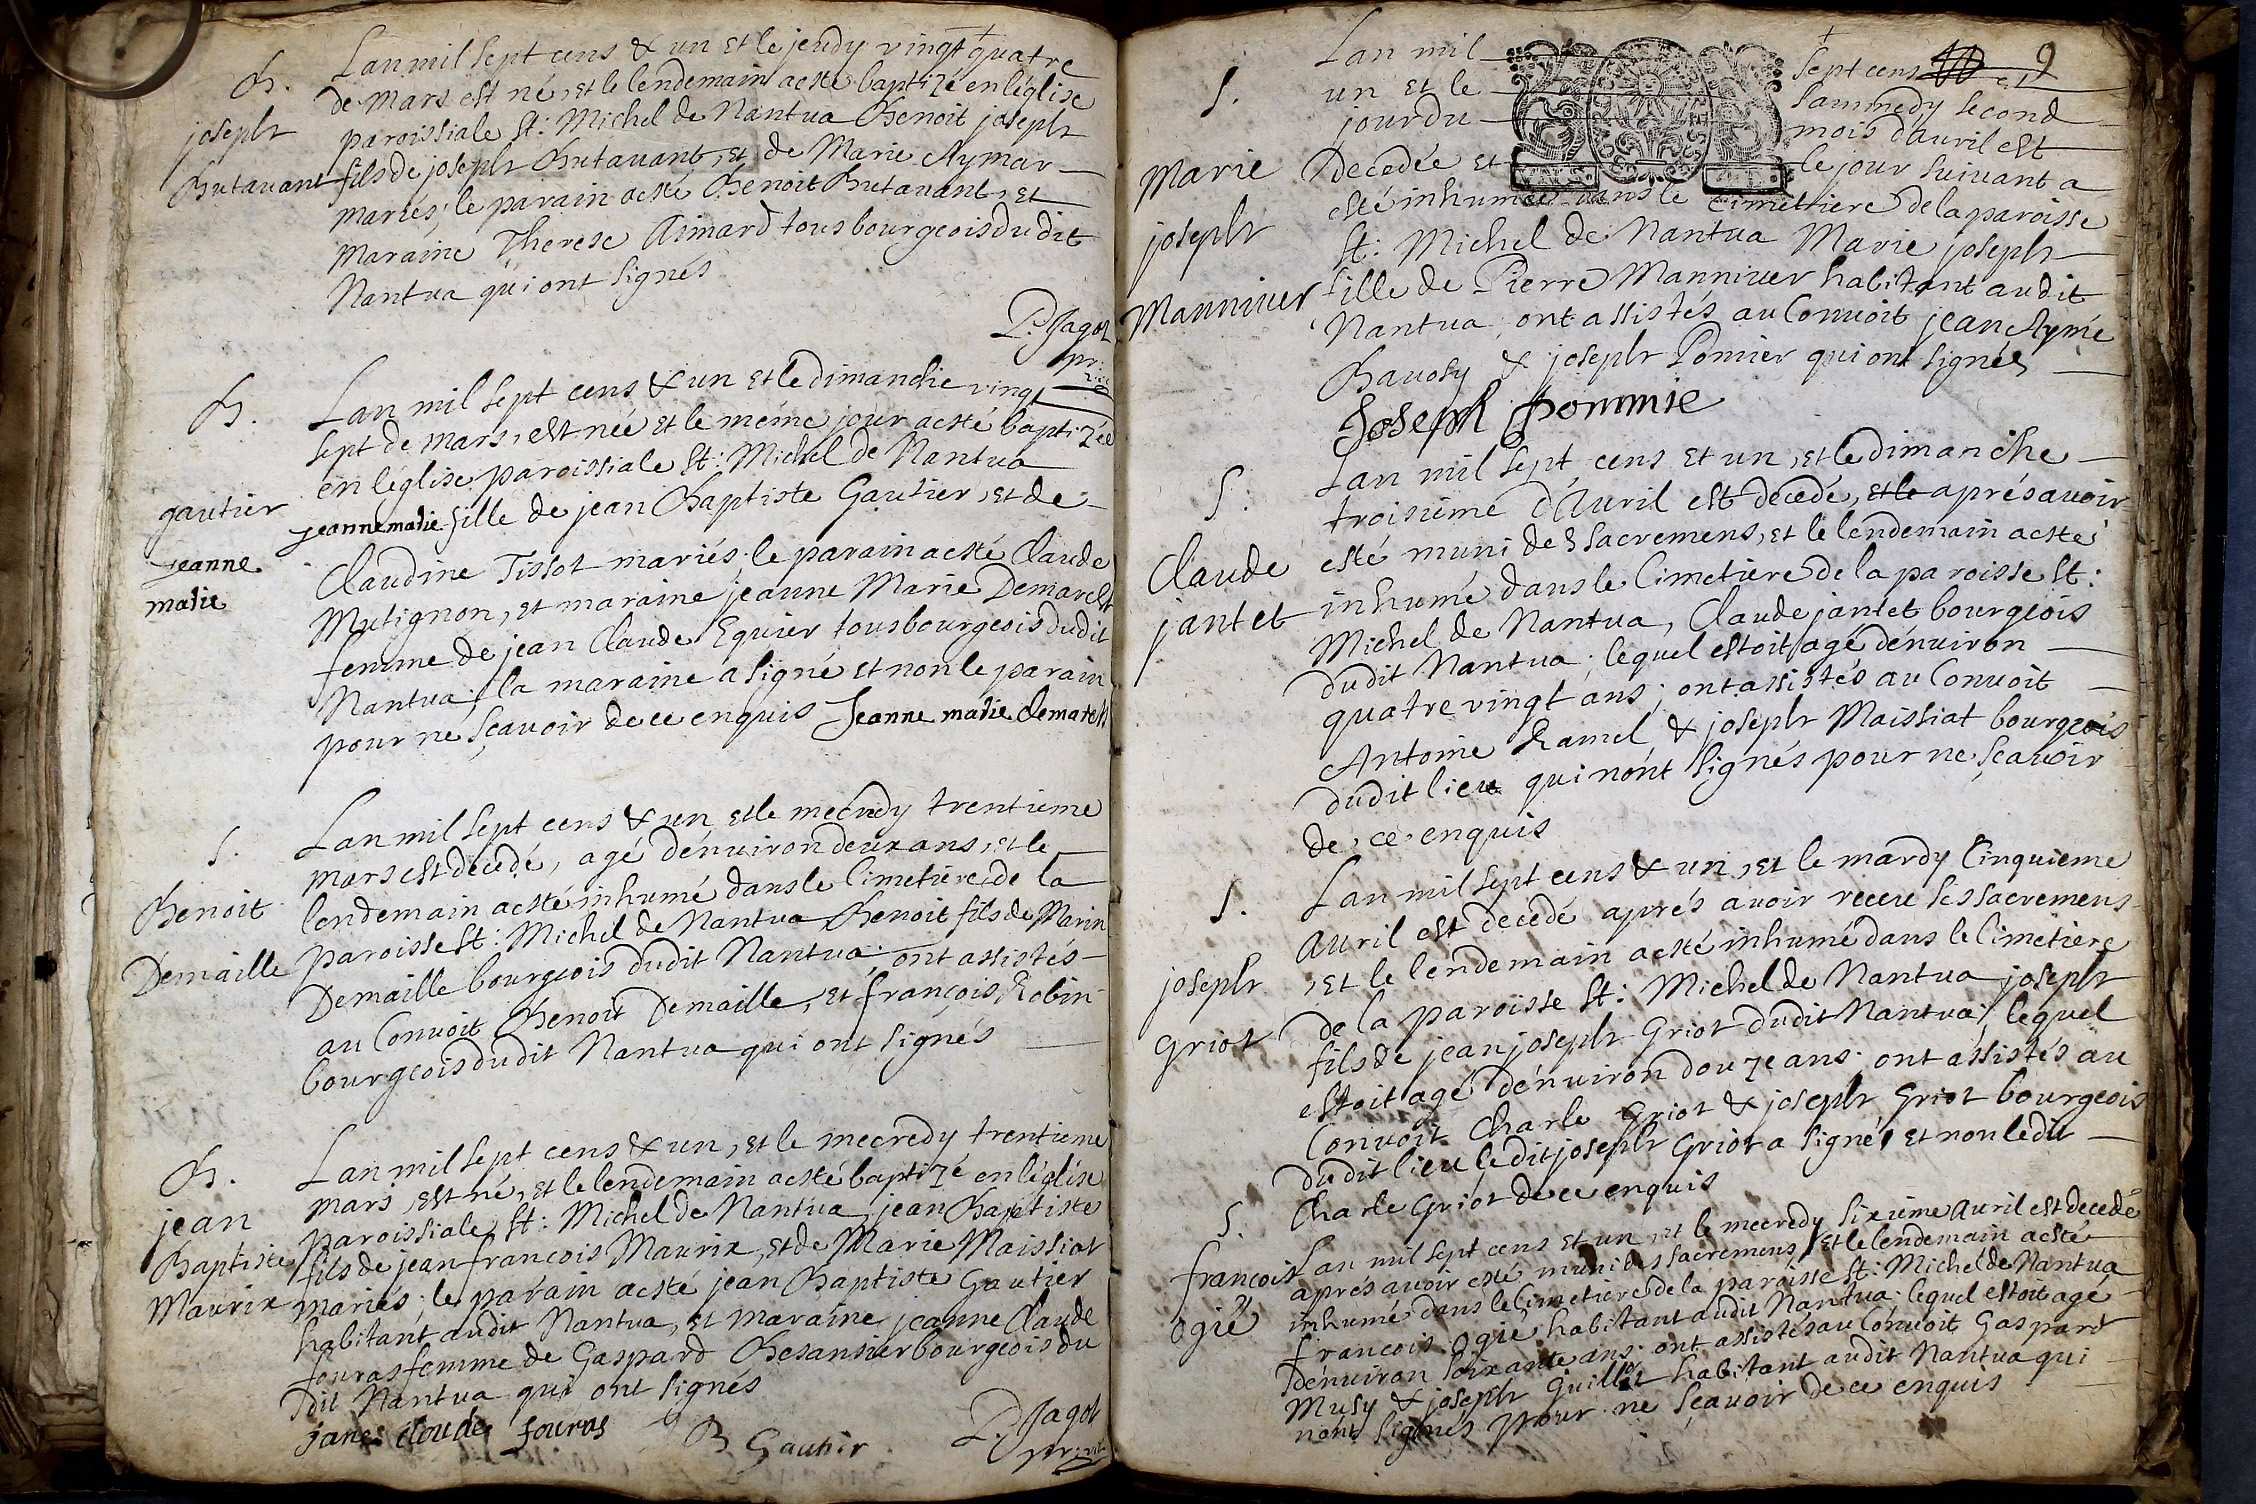 B.
joseph
Butavant
Lan mil sept cens & un et le jeudy vingt quatre
de mars est né, et le lendemain a esté baptizé en léglise
paroissiale St: Michel de Nantua Benoit joseph
fils de joseph Butavant, et de Marie Aymar
mariés; le parain a esté Benoit Butavant, et
Maraine Therese Aimard tous bourgeois dudit
Nantua qui ont signés
P. Jagot
B.
gautier
jeanne
marie
Lan mil sept cens & un et le dimanche vingt
sept de mars, est née et le méme jour a esté baptizée
en léglise paroissiale St: Michel de Nantua
jeanne marie fille de jean Baptiste Gautier, et de
Claudine Tissot mariés; le parain a esté Claude
Mutignon, et maraine jeanne Marie Demarest
femme de jean Claude Eguier tous bourgeois dudit
Nantua; la maraine a signé et non le parain
pour ne sçavoir de ce enquis Jeanne marie demarest
S.
Benoit
Demaille
Lan mil sept cens & un et le mecredy trentieme
mars est decedé, agé dénviron deux ans, et le
lendemain a esté inhumé dans le Cimetiere de la
paroisse St: Michel de Nantua Benoit fils de Marin
Demaille bourgeois dudit Nantua; ont assistés
au Convoit Benoit Demaille, et françois Robin
bourgeois dudit Nantua qui ont signés
B.
jean
Baptiste
Maurix
Lan mil sept cens & un, et le mecredy trentieme
mars, est né, et le lendemain a esté baptizé en léglise
paroissiale St: Michel de Nantua jean Baptiste
fils de jean francois Maurix, et de Marie Maissiat
mariés; le parain a esté jean Baptiste Gautier
habitant audit Nantua, et maraine jeanne Claude
fouras femme de Gaspard Besansier bourgeois du
dit Nantua qui ont signés
jane cloude fouras
B Gautier
P. Jagot
9
S.
Marie
joseph
Manniver
Lan mil sept cens et
un et le sammedy second
jour du mois d'avril est
decedée et le jour suivant a
esté inhumée dans le Cimettiere de la paroisse
St: Michel de Nantua Marie joseph
fille de Pierre Manniver habitant audit
Nantua; ont assistés au Convoit jean Aymé
Bavosy & joseph Pomier qui ont signés
Joseph Pommie
S.
Claude
jantet
Lan mil sept cens et un, et le dimanche
troisieme d'avril est decedé, et le aprés avoir
esté muni des sacremens, et le lendemain a esté
inhumé dans le Cimetiere de la paroisse St:
Michel de Nantua, Claude jantet bourgeois
dudit Nantua; lequel estoit agé dénviron
quatre vingt ans; ont assistés au Convoit
Antoine Ramel & joseph Maissiat bourgeois
dudit lieu qui nont signés pour ne sçavoir
de ce enquis
S.
joseph
griot
Lan mil sept cens & un, et le mardy Cinquieme
avril est decedé aprés avoir receu ses sacremens
, et le lendemain a esté inhumé dans le Cimetiere
de la paroisse St: Michel de Nantua joseph
fils de jean joseph Griot dudit Nantua, lequel
estoit agé dénviron douze ans; ont assistés au
Convoit Charle Griot & joseph Griot bourgeois
dudit lieu ledit joseph Griot a signé, et non ledit
Charle Griot de ce enquis
S.
francois
ogié
Lan mil sept cens et un, et le mecredy sixieme avril est decedé
aprés avoir esté muni des sacremens, et le lendemain a esté
inhumé dans le Cimetiere de la paroisse St: Michel de Nantua
francois ogié habitant audit Nantua; lequel estoit agé
dénviron soixante ans; ont assistés au Convoit Gaspard
Musy & joseph Guillot habitant audit Nantua qui
nont signés pour ne sçavoir de ce enquis